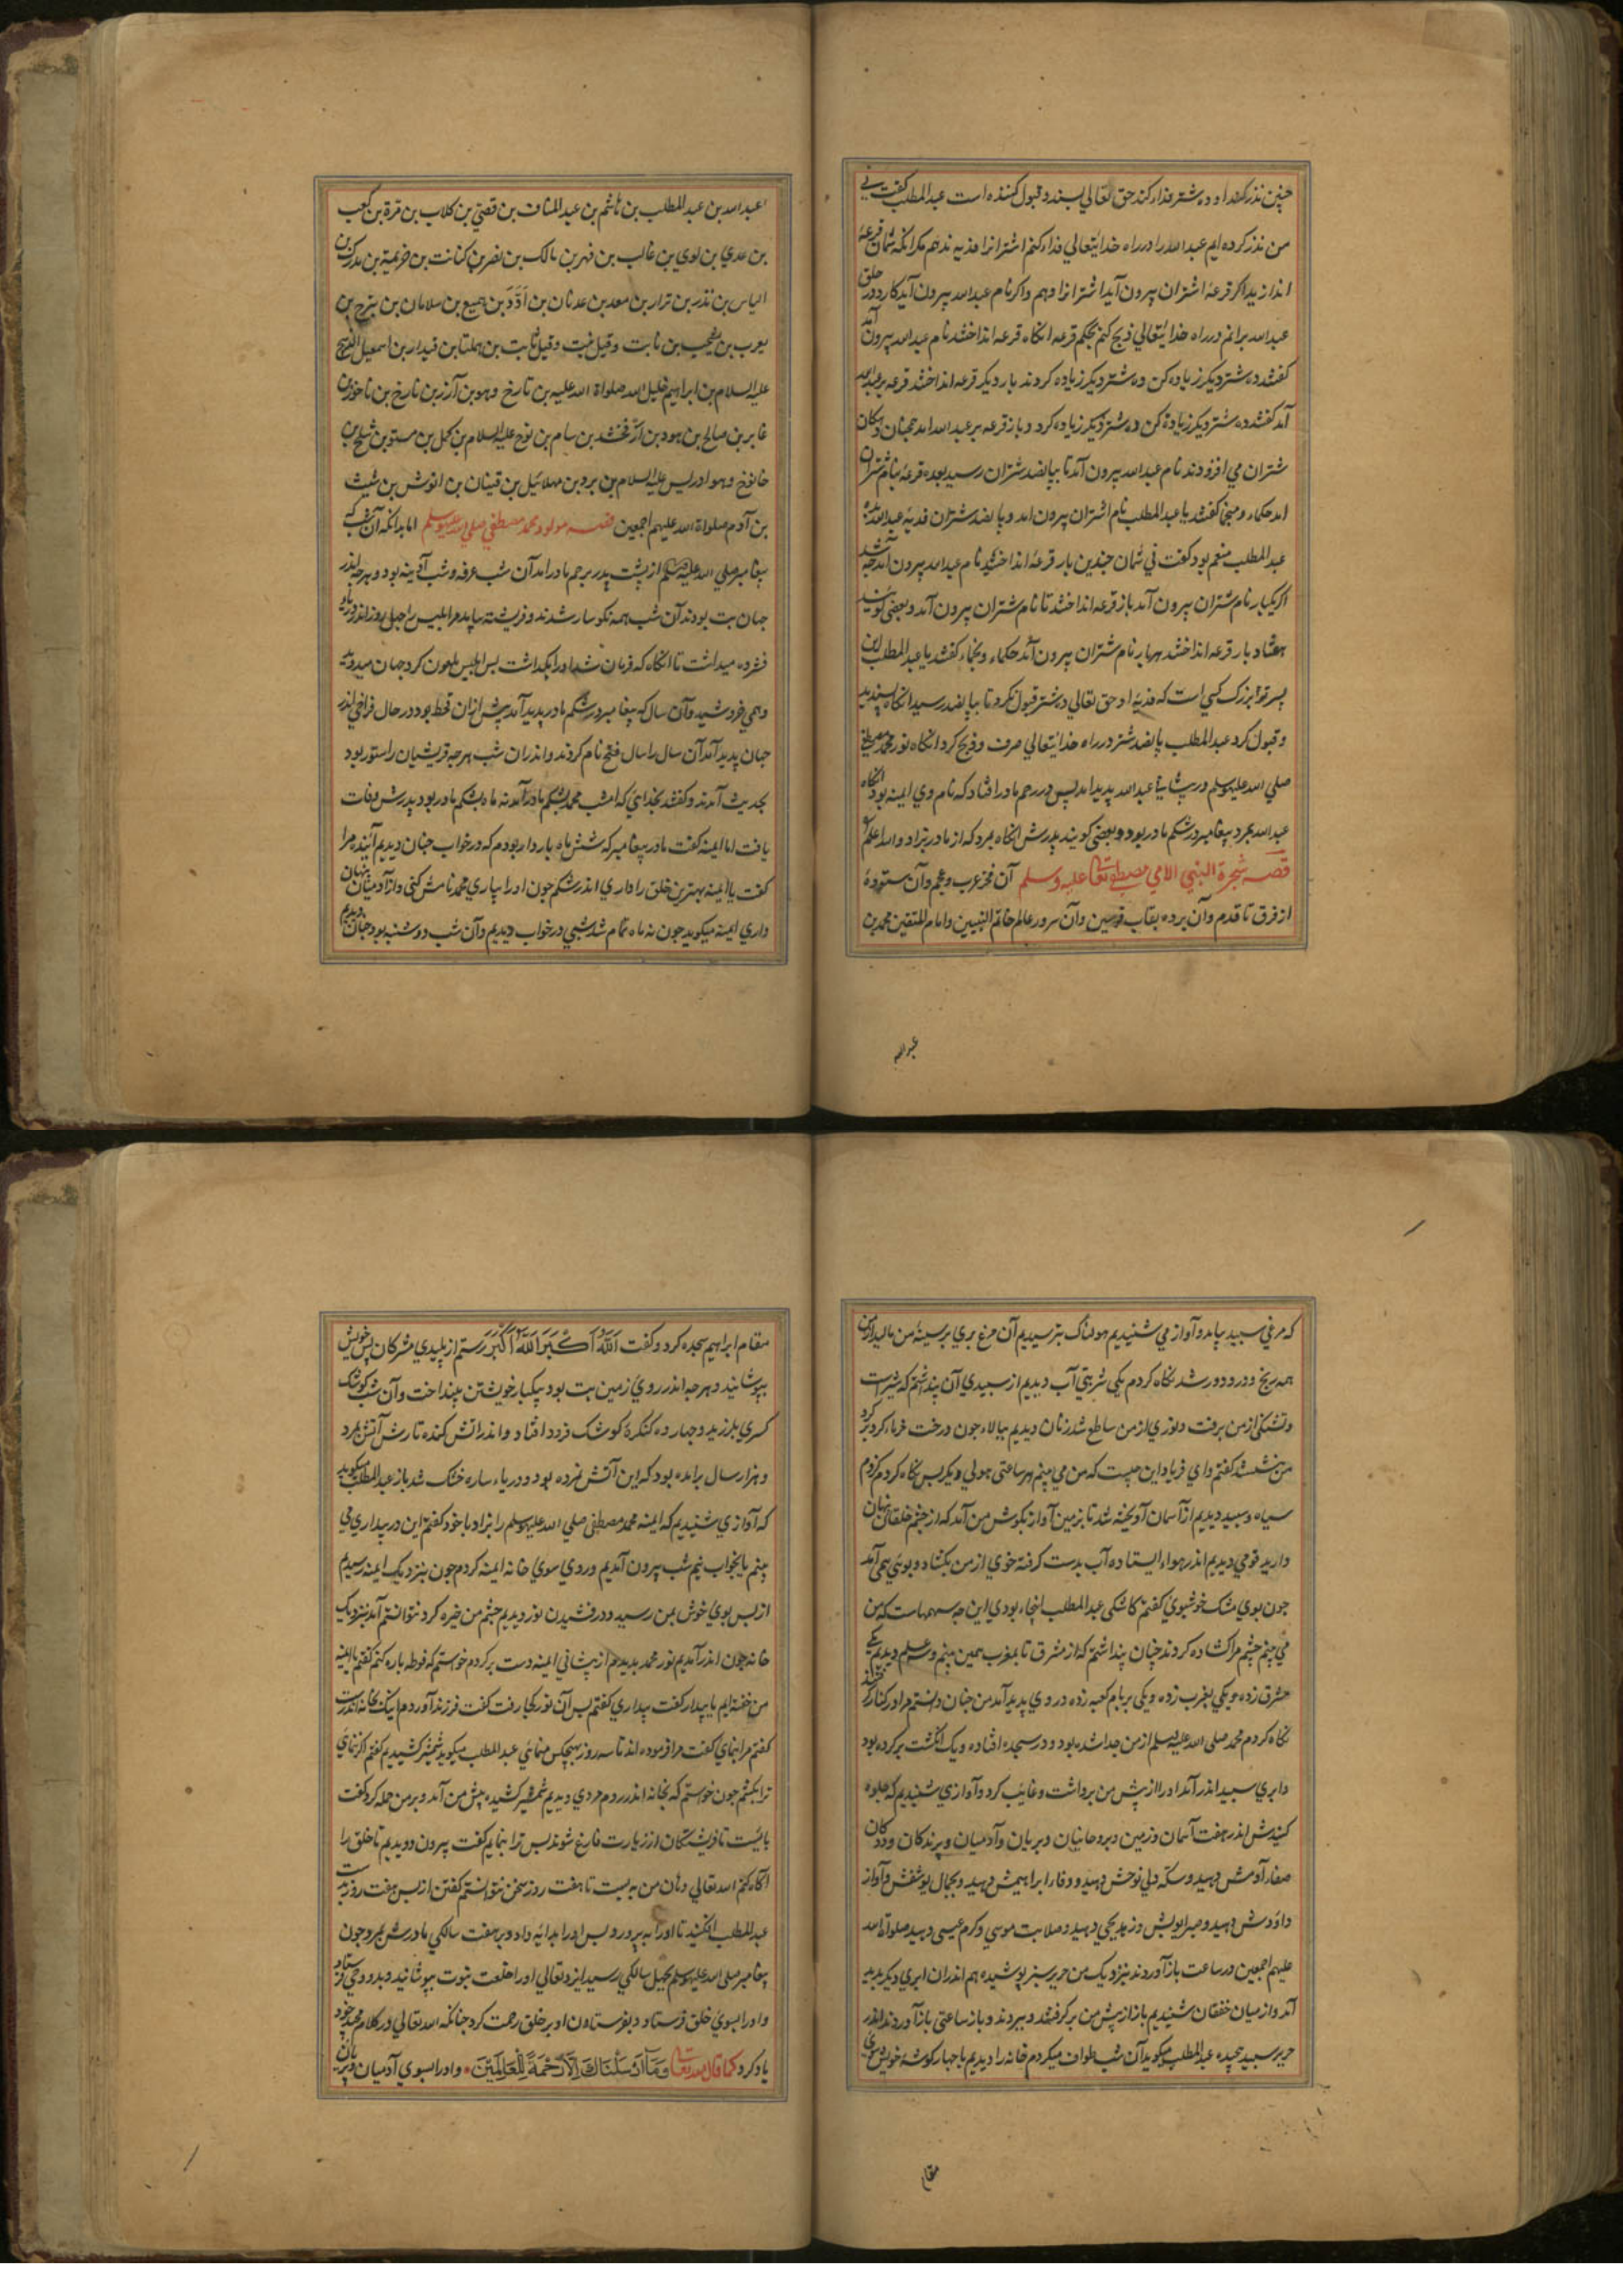 چنین نذر کند او ده شتر فداء کند حق تعالي بسندد قبول کننده است عبد المطلب کفت ني
من نذر کرده ایم عبد الله را در راه خدایتعالي فداء کنم اشترانرا فدیه ندهم مکر انکه شمان قرعه
اندازید اکر قرعۀ اشتران بیرون آید اشترانرا دهم واکر نام عبد الله بیرون آید کارد در حلق
عبد الله برانم در راه خدایتعالي ذبح کنم بحکم قرعه انکاه قرعه انداختند نام عبد الله بیرون آمد
کفتند ده شتر دیکر زیاده کن ده شتر دیکر زیاده کردند بار دیکر قرعه انداختند قرعه بر عبد الله
آمد کفتند ده شتر دیکر زیادة کن ده شتر دیکر زیاده کرد و باز قرعه بر عبد الله امد همچنان دکان
شتران مي افزودند نام عبد الله بیرون آمد تا بپانصد شتران رسید بعده قرعه بنام شتران
امد حکماء ومنجما کفتند یا عبد المطلب نام اشتران بیرون امد و پانصد شتران فدیه عبد الله بده
عبد المطلب منعم بود کفت ني شمان چندین بار قرعه انداختید نام عبد الله بیرون آمد چه شد
اکر یکبار نام شتران بیرون آمد باز قرعه انداختند تا نام شتران بیرون آمد و بعضي کویند
هفتاد بار قرعه انداختند هربار نام شتران بیرون آمد حکماء ونجماء کفتند یا عبد المطلب این
پسر تو بزرک کسي است که فدیۀ او حق تعالي ده شتر قبول نکرد تا بپانصد رسید انکاه پسندید
و قبول کرد عبد المطلب پانصد شتر در راه خدایتعالي صرف وذبح کرد انکاه نور محمد مصطفي
صلي الله علیه وسلم در پیشاني عبد الله پدید امد پس در رحم مادر افتاد که نام وي ایمنه بود انکاه
عبد الله بمرد پیغامبر در شکم مادر بود و بعضي کویند پدرش انکاه بمرد که از مادر بزاد والله اعلم
قصه شجرة النبي الامي مصطفي تعا علیه وسلم آن فخر عرب وعجم وآن ستودۀ
از فرق تا قدم وآن برده بقاب قوسین وآن سرور عالم خاتم النبیین وامام المتقین محمد بن
عبد الله
عبد الله بن عبد المطلب بن هاشم بن عبد المناف بن قصي بن کلاب بن مرة بن کعب
بن عدي بن لوي بن غالب بن فهر بن مالک بن نضر بن کنانت بن خزیمة بن مدرکة بن
الیاس بن نذر بن نزار بن معد بن عدنان بن اَدَدَ بن همیع بن سلامان بن بنرح بن
یعرب بن یشحب بن نابت وقیل نبت وقیل ثابت بن هملتا بن قیدار بن اسمعیل الذبیح
علیه السلام بن ابراهیم خلیل الله صلواة الله علیه بن تارخ وهو بن آزر بن تارخ بن ناحور بن
عابر بن صالح بن هود بن ارفخشد بن سام بن نوح علیه السلام بن کمل بن مستو بن شلخ بن
خانوخ وهو ادریس علیه السلام بن برد بن مهلائیل بن قینان بن انوش بن شیث
بن آدم صلواة الله علیهم اجمعین قصه مولود محمد مصطفي صلي الله علیه وسلم اما بدانکه آن شب که
پیغامبر صلي الله علیه وسلم از پشت پدر برحم مادر امد آن شب عرفه وشب آدینه بود وهرچه اندر
جهان بت بودند آن شب همه نکوسار شدند وفریشته بیامد مر ابلیس را چهل روز اندر دریاء
فشرده میداشت تا انکاه که فرمان شد او را بکداشت پس ابلیس ملعون کرد جهان میدوید
وهمي خروشید وآن سال که پیغامبر در شکم مادر پدید آمد پیش ازان قحط بود در حال فراخي اندر
جهان پدید آمد آن سال را سال فتح نام کردند واندران شب هرچه قریشیان را ستور بود
بحدیث آمدند وکفتند بخداي که امشب محمد بشکم مادر آمد نه ماه بشکم مادر بود پدرش وفات
یافت اما ایمنه کفت مادر پیغامبر که شش ماه باردار بودم که در خواب چنان دیدیم آینده مرا
کفت یا ایمنه بهترین خلق را داري اندر شکم چون او را بیاري محمد نامش کني واز آدمیان پنهان
داري ایمنه میکوید چون نه ماه تمام شد شبي در خواب دیدیم وآن شب دوشنبه بود چنان دیدیم
که مرغي سپید بیامد وآواز مي شنیدیم هولناک بترسیدیم آن مرغ بري بر سینۀ من مالید از من
همه رنج و درد دور شد نکاه کردم یکي شربتي آب دیدیم از سپیدي آن پنداشتم که شیر است
وتشنکي از من برفت و نوري از من ساطع شد زنان دیدیم ببالاء چون درخت خرماء کرد بر کرد
من بنشستند کفتم واي فریاد این چیست که من مي بینم هر ساعتي هولي دیکر پس نکاه کردم مردم
سیاه و سپید دیدیم از آسمان آویخته شد تا بزمین آواز بکوش من آمد که از چشم خلقان نهان
دارید قومي دیدیم اندر هواء ایستاده آب بدست کرفته خوي از من بکشاد و بوئي همي آمد
چون بوي مشک خوشبوي کفتم کاشکي عبد المطلب اینجاء بودي این چه سهمهاست که من
مي بینم چشم مرا کشاده کردند چنان پنداشتم که از مشرق تا بمغرب همین بینم و سه علم دیدیم یکي
مشرق زده ویکي بمغرب زده ویکي بربام کعبه زده در وي پدید آمد من چنان دانستم مرا در کنار کرفتند
نکاه کردم محمد صلي الله علیه وسلم از من جدا شده بود ودر سجده افتاده ویک انکشت بر کرده بود
وابري سپید اندر آمد او را از پیش من برداشت وغایب کرد وآوازي شنیدیم که جلوه
کنیدش اندر هفت آسمان وزمین وبروحانیان وپریان وآدمیان وپرندکان وددکان
صفاء آدمش دهید و سکه ولي نوحش دهید و وفاء ابراهیمش دهید و بجمال یوسفش وآواز
داوٗدش دهید وصبر ایوبش وزهد یحیي دهید وصلابت موسي وکرم عیسي دهید صلواة الله
علیهم اجمعین در ساعت باز آوردند بنزدیک من حریر سبز پوشیده هم اندران ابري دیکر پدید
آمد واز میان خفقان شنیدیم باز از پیش من برکرفتند وببردند وباز ساعتي باز آوردند اندر
حریر سپید پیچیده عبد المطلب میکوید آن شب طواف میکردم خانه را دیدیم با چهار کوشۀ خویش سوي
مقام
مقام ابراهیم سجده کرد وکفت اَللّٰهُ اَکْبَرُ اَللّٰهُ اَکْبَرُ رستم از پلیدي مشرکان پس خویش
بپوشانید وهرچه اندر روي زمین بت بود بیکبار خویشتن بینداخت وآن شب کوشک
کسري بلرزید وچهارده کنکرۀ کوشک فرود افتاد واندر آتش کده تارش آتش بمرد
وهزار سال برامده بود که این آتش نمرده بود ودریاء ساره خشک شد باز عبد المطلب میکوید
که آوازي شنیدیم که ایمنه محمد مصطفي صلي الله علیه وسلم را بزاد با خود کفتم این در بیداري مي
بینم یا بخواب نیم شب بیرون آمدیم وروي سوي خانه ایمنه کردم چون بنزدیک ایمنه رسیدیم
از بس بوي خوش بمن رسید ودرفشیدن نور دیدیم چشم من خیره کرد نتوانستم آمد بنزدیک
خانه چون اندر آمدیم نور محمد بدیدم از پیشاني ایمنه دست بر کردم خواستم که فوطه باره کنم کفتم یا ایمنه
من خفته ایم یا بیدار کفت بیداري کفتم پس آن نور کجا رفت کفت فرزند آوردم اینک بخانه اندرست
کفتم مرا بنماي کفت مرا فرموده اند تا سه روز بهیچکس منمائي عبد المطلب میکوید شمشیر کشیدیم کفتم اکر ننماي
ترا بکشم چون خواستم که بخانه اندر روم مردي دیدیم شمشیر کشیده پیش من آمد وبر من حمله کرد کفت
باایست تا فریشتکان از زیارت فارغ شوند پس ترا بنمایم کفت بیرون دویدیم تا خلق را
آکاه کنم الله تعالي دهان من به بست تا هفت روز سخن نتوانستم کفتن از پس هفت روز
عبد المطلب تا او را به پرورد پس او را بدایه داد وبهفت سالکي مادرش بمرد چون
پیغامبر صلي الله علیه وسلم بچهل سالکي رسید ایزد تعالي او را خلعت نبوت بپوشانید وبدو وحي فرستاد
واو را بسوي خلق فرستاد وبفرستادن او بر خلق رحمت کرد چنانکه الله تعالي در کلام مجید خود
یاد کرد کما قال الله تعا وَمَا اَرْسَلْنَاكَ اِلَّا رَحْمَةً لِّلْعَالَمِیْنَ واو را بسوي آدمیان وپریان